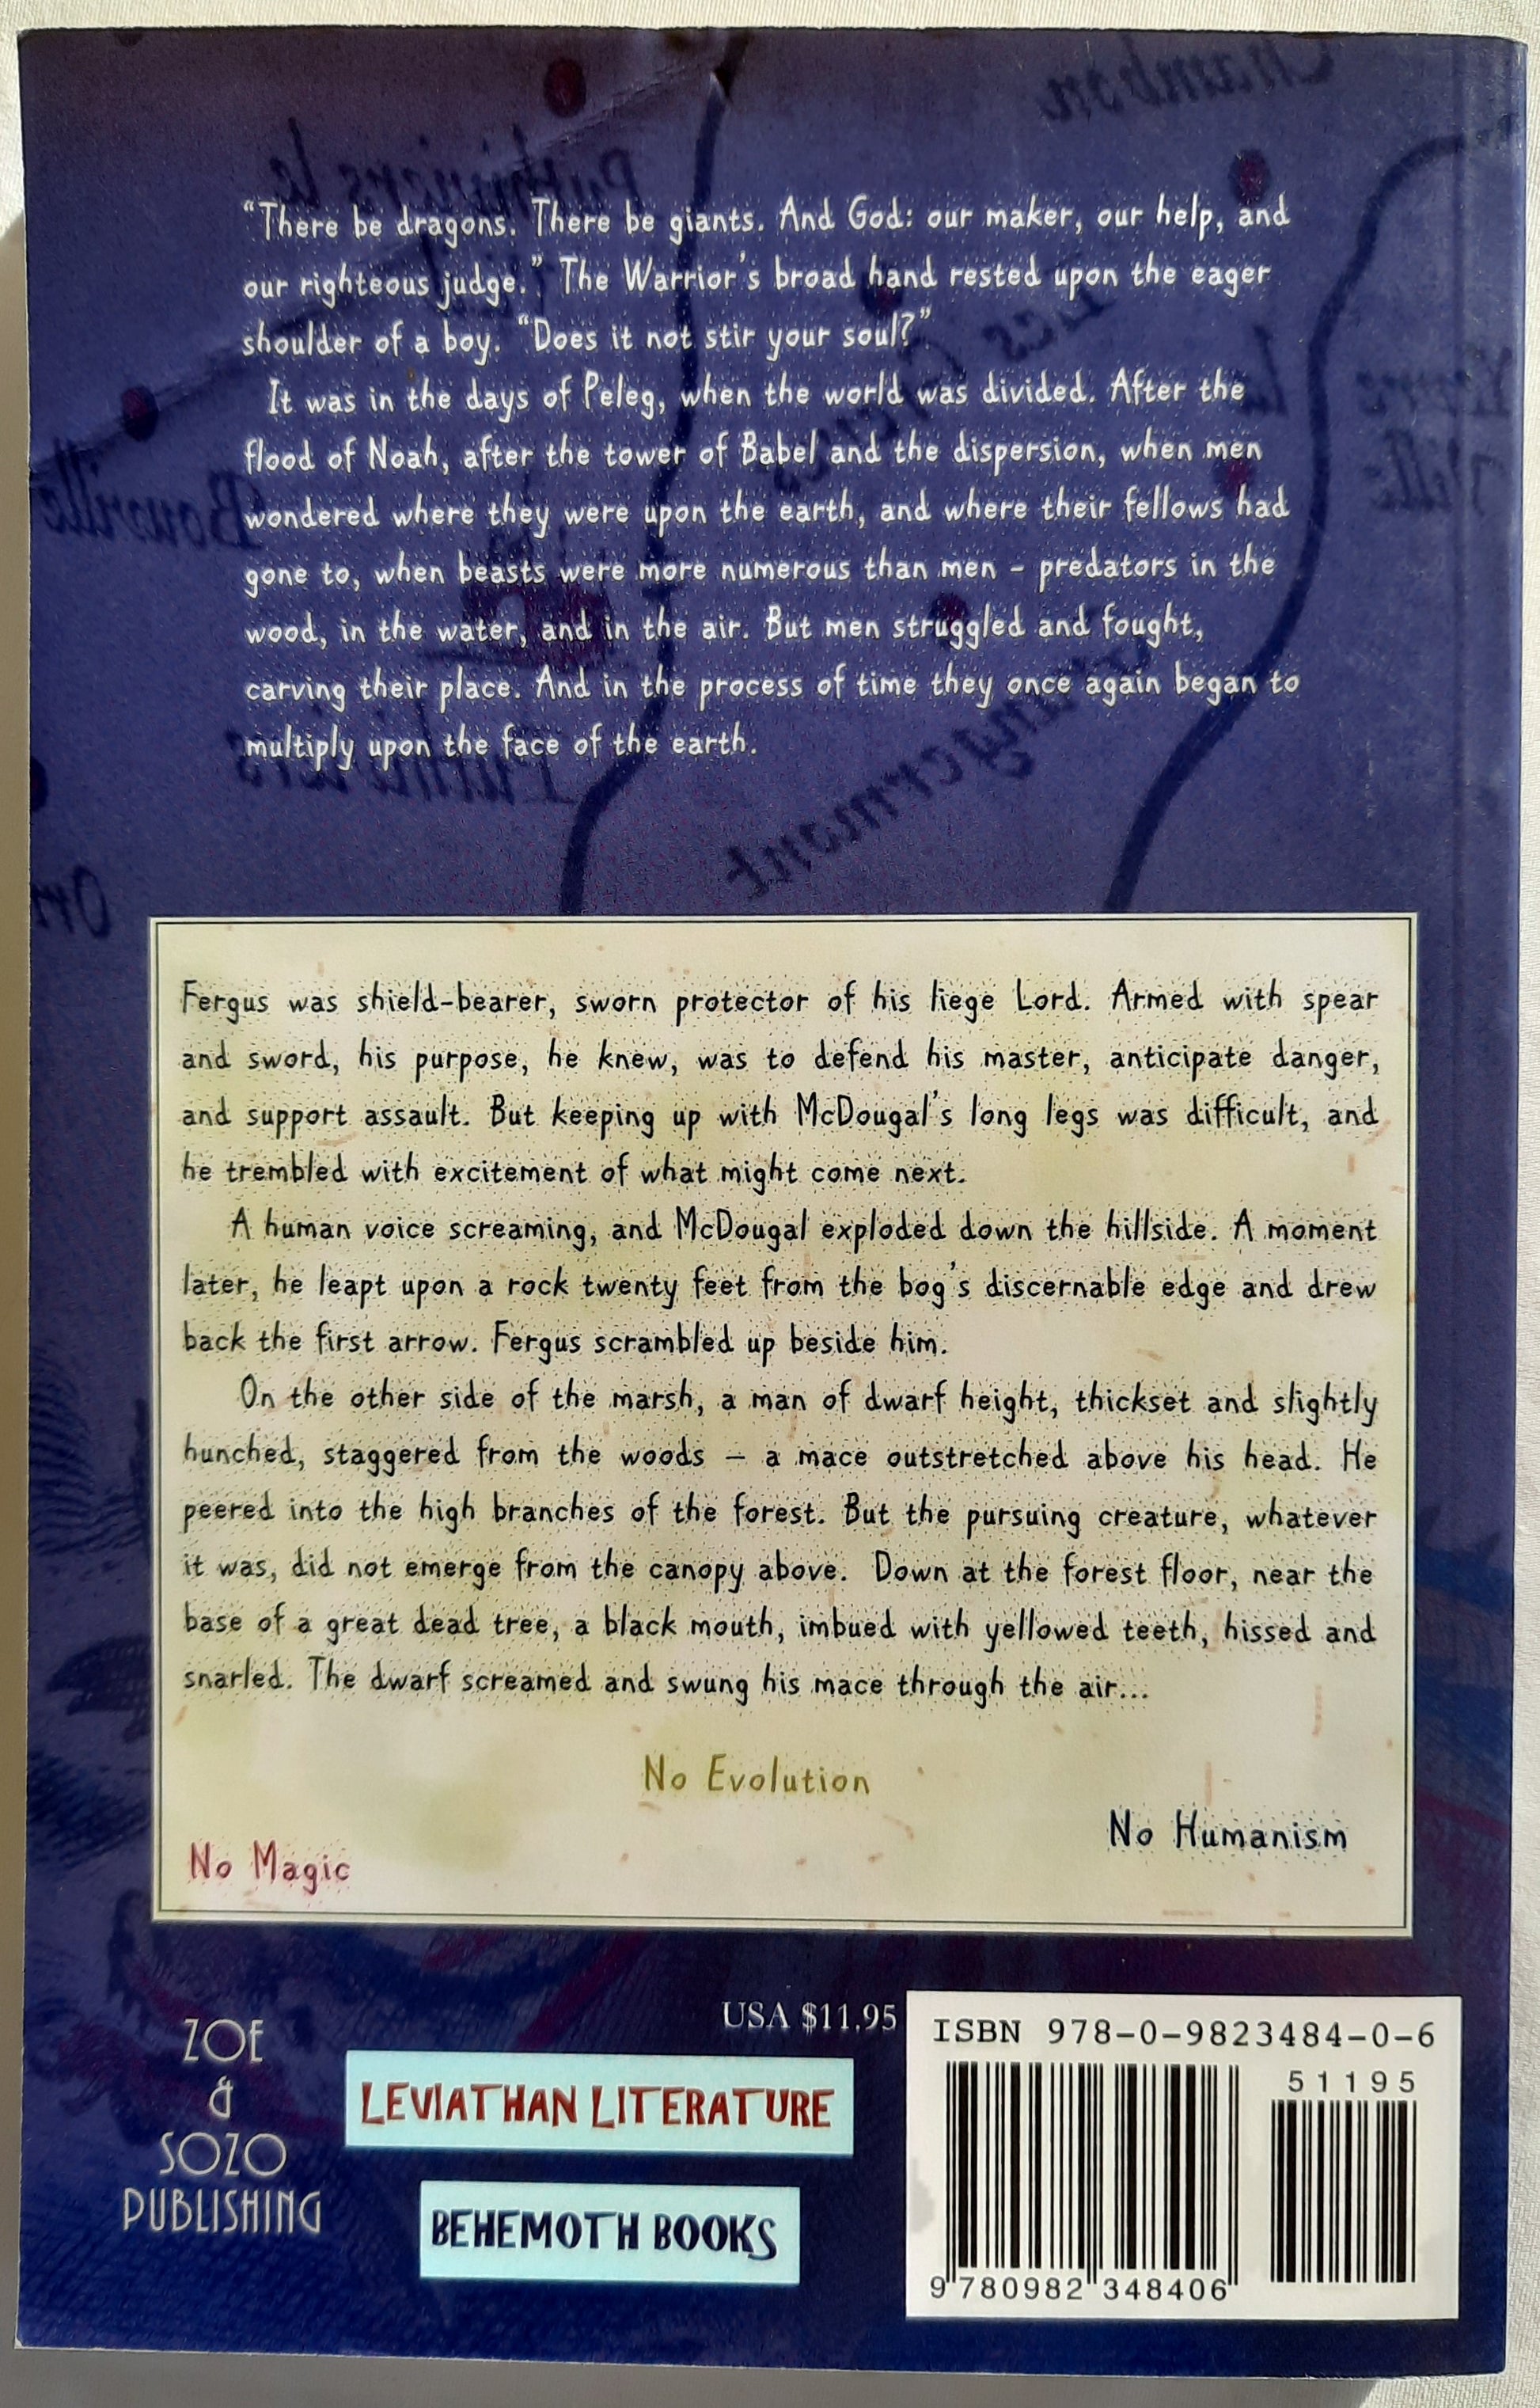 “There be dragons. There be giants. And God: our maker, our help, and
our righteous judge.” The Warrior’s broad hand rested upon the eager
shoulder of a boy. “Does it not stir your soul?”
It was in the days of Peleg, when the world was divided. After the
flood of Noah, after the tower of Babel and the dispersion, when men
wondered where they were upon the earth, and where their fellows had
gone to, when beasts were more numerous than men – predators in the
wood, in the water, and in the air. But men struggled and fought,
carving their place. And in the process of time they once again began to
multiply upon the face of the earth.
Fergus was shield-bearer, sworn protector of his liege Lord. Armed with spear
and sword, his purpose, he knew, was to defend his master, anticipate danger,
and support assault. But keeping up with McDougal’s long legs was difficult, and
he trembled with excitement of what might come next.
A human voice screaming, and McDougal exploded down the hillside. A moment
later, he leapt upon a rock twenty feet from the bog’s discernable edge and drew
back the first arrow. Fergus scrambled up beside him.
On the other side of the marsh, a man of dwarf height, thickset and slightly
hunched, staggered from the woods – a mace outstretched above his head. He
peered into the high branches of the forest. But the pursuing creature, whatever
it was, did not emerge from the canopy above. Down at the forest floor, near the
base of a great dead tree, a black mouth, imbued with yellowed teeth, hissed and
snarled. The dwarf screamed and swung his mace through the air...
No Evolution
No Humanism
No Magic
USA $11.95
ZOE
&
SOZO
PUBLISHING
LEVIATHAN LITERATURE
BEHEMOTH BOOKS
ISBN 978-0-9823484-0-6
51195
9 780982 348406